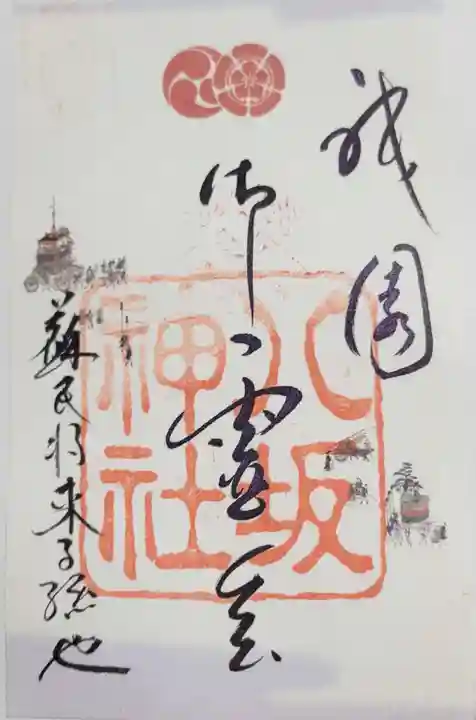 祇園
御靈会
八坂
神社
蘇民将来子孫也